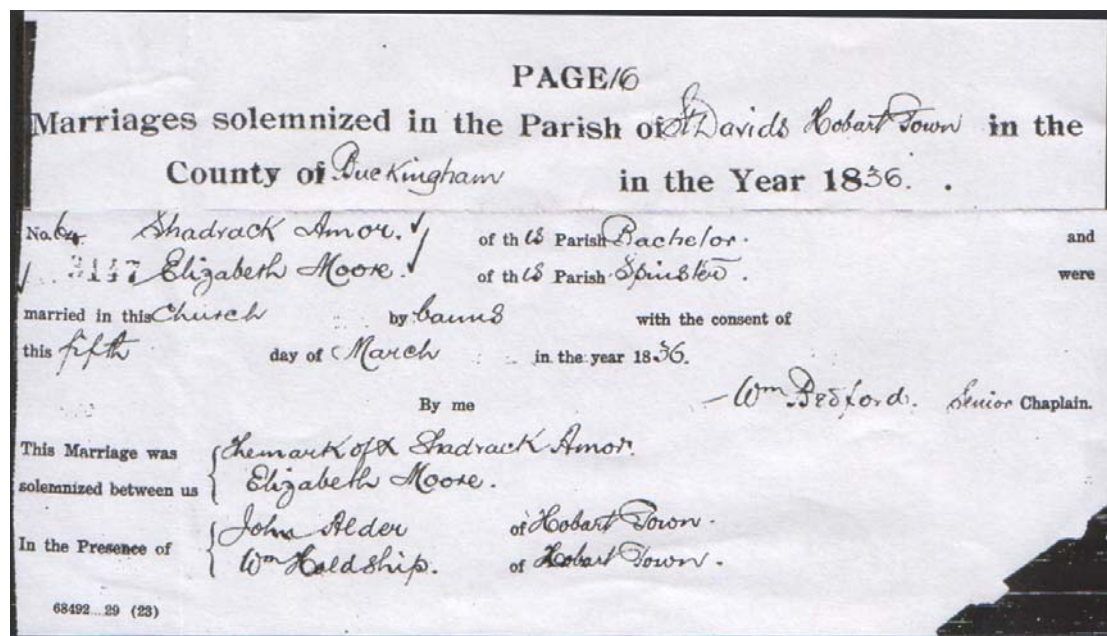 PAGE 16
Marriages solemnized in the Parish of St Davids Hobart Town in the
County of Buckingham in the Year 1836. .
No. Shadrack Amor. of this Parish Bachelor. and
3147 Elizabeth Moore. of this Parish Spinster. were
married in this Church by banns with the consent of
this fifth day of March in the year 1836.
By me Wm Bedford. Senior Chaplain.
This Marriage was The mark of X Shadrack Amor.
solemnized between us Elizabeth Moore.
In the Presence of John Alder of Hobart Town.
Wm Holdship. of Hobart Town.
68492...29 (23)